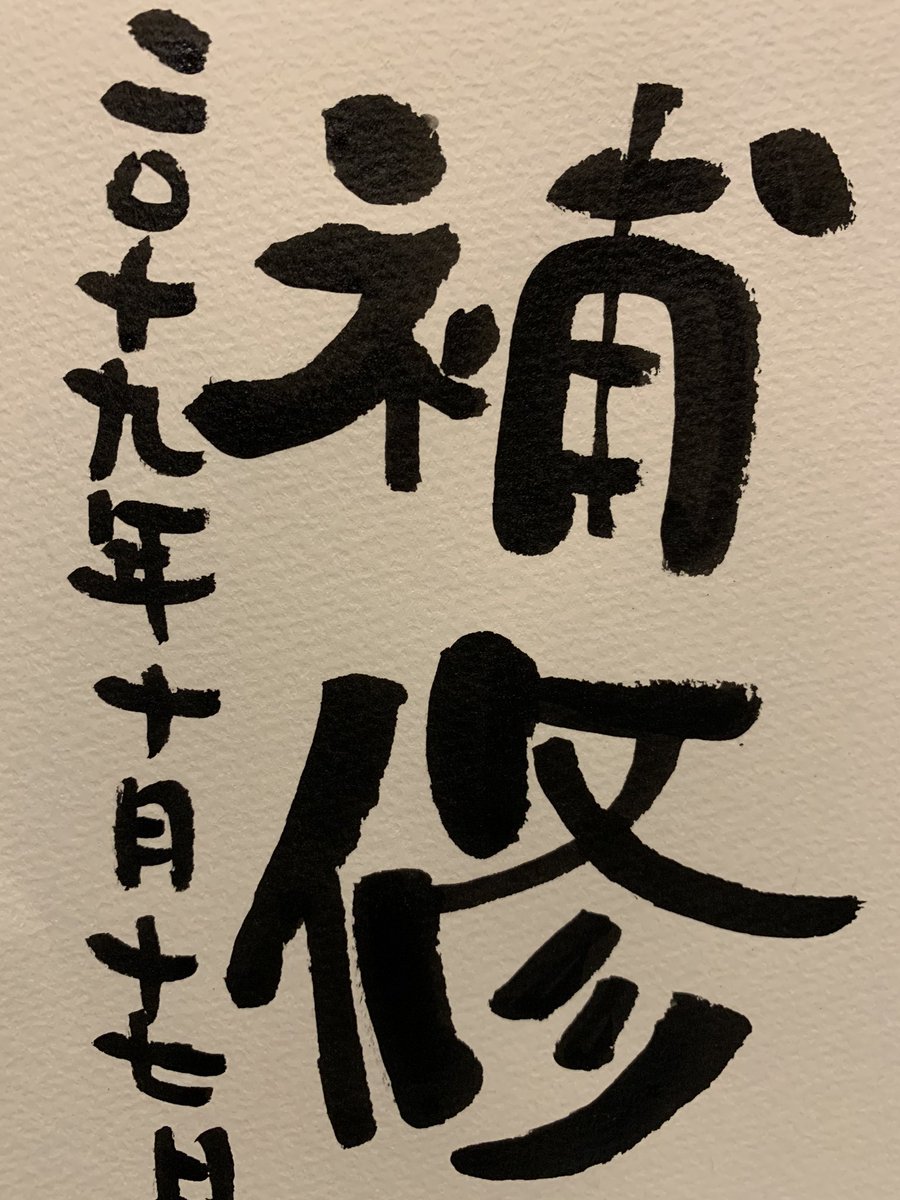 補修
二〇十九年十月十七日